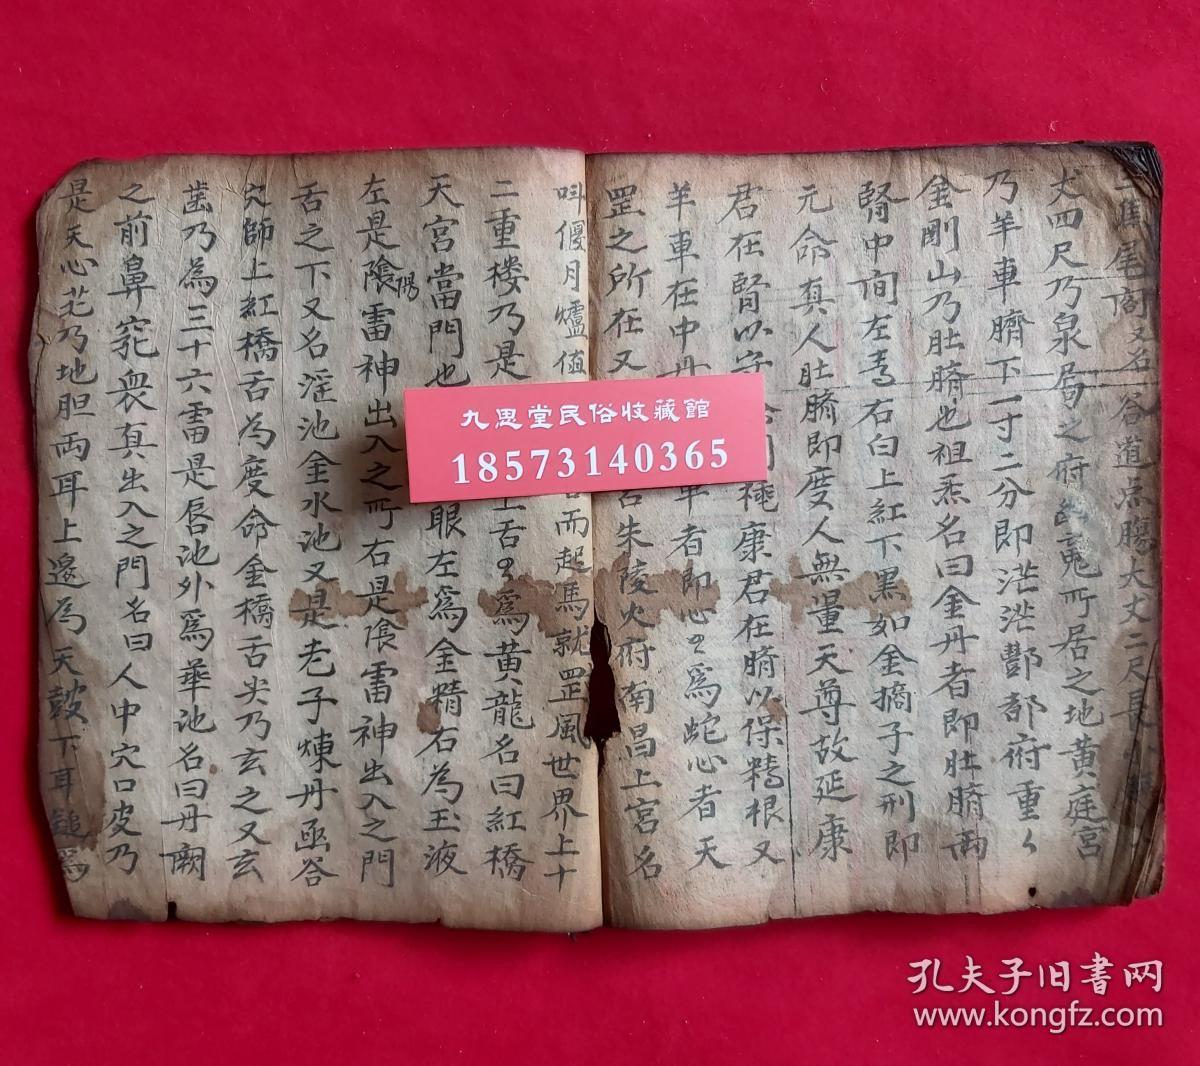 尾閭又名谷道点腸大丈二尺長
丈四尺乃泉局之府幽䰟所居之地黄庭宮
乃羊車臍下一寸二分即茫茫酆都府重〻
金剛山乃肚臍也祖炁名曰金丹者即肚臍両
腎中间左青右白上紅下黒如金摘子之刑即
元命真人肚臍即度人無量天尊故延康
君在腎以守
極康君在臍以保精根又
羊車在中丹
車者即心〻為蛇心者天
罡之所在又
名朱陵火府南昌上宮名
呌偃月爐值
而起馬就罡風世界上十
二重楼乃是
上舌〻爲黄龍名曰紅橋
天宮當門也
眼左爲金精右為玉液
左是陰陽雷神出入之所右是陰雷神出入之門
舌之下又名淫池金水池又是老子煉丹函谷
穴師上紅橋舌為度命金橋舌尖乃玄之又玄
歯乃為三十六雷是唇池外爲華池名曰丹闕
之前鼻䆴衆真出入之門名曰人中穴口皮乃
是天心芘乃地胆両耳上邉為天皷下耳鎚爲
九思堂民俗收藏館
18573140365
孔夫子旧书网
www.kongfz.com